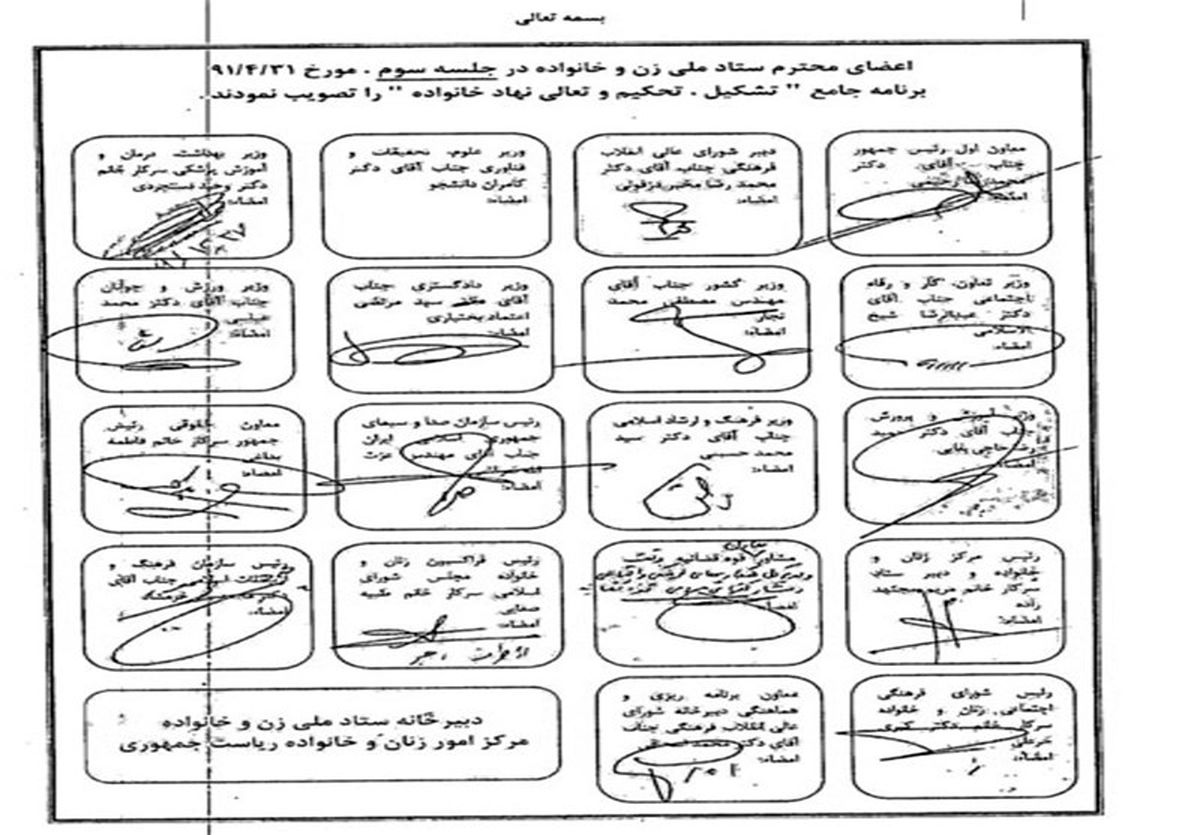 بسمه تعالی
اعضای محترم ستاد ملی زن و خانواده در جلسه سوم . مورخ ۹۱/۴/۳۱
برنامه جامع " تشکیل . تحکیم و تعالی نهاد خانواده " را تصویب نمودند.
معاون اول رئیس جمهور
جناب آقای دکتر
محمد
امضاء:
دبیر شورای عالی انقلاب
فرهنگی جناب آقای دکتر
محمد رضا مخبر دزفولی
امضاء:
وزیر علوم، تحقیقات و
فناوری جناب آقای دکتر
کامران دانشجو
امضاء:
وزیر بهداشت، درمان و
آموزش پزشکی سرکار خانم
دکتر وحید دستجردی
امضاء:
وزیر تعاون، کار و رفاه
اجتماعی جناب آقای
دکتر عبدالرضا شیخ
الاسلامی
امضاء:
وزیر کشور جناب آقای
مهندس مصطفی محمد
نجار
امضاء:
وزیر دادگستری جناب
آقای سید مرتضی
اعتماد بختیاری
امضاء:
وزیر ورزش و جوانان
جناب آقای دکتر محمد
عباسی
امضاء:
وزیر آموزش و پرورش
جناب آقای دکتر حمید
رضا حاجی بابایی
امضاء:
وزیر فرهنگ و ارشاد اسلامی
جناب آقای دکتر سید
محمد حسینی
امضاء:
رئیس سازمان صدا و سیمای
جمهوری اسلامی ایران
جناب آقای مهندس عزت
امضاء:
معاون حقوقی رئیس
جمهور سرکار خانم فاطمه
بداغی
امضاء:
رئیس مرکز زنان و
خانواده و دبیر ستاد
سرکار خانم مریم مجتهد
زاده
امضاء:
مشاور قوه قضائیه
امضاء:
رئیس فراکسیون زنان و
خانواده مجلس شورای
اسلامی سرکار خانم طیبه
صفایی
امضاء:
رئیس سازمان فرهنگ و
جناب آقای
امضاء:
رئیس شورای فرهنگی
اجتماعی زنان و خانواده
سرکار خانم دکتر کبری
خزعلی
امضاء:
معاون برنامه ریزی و
هماهنگی دبیرخانه شورای
عالی انقلاب فرهنگی جناب
آقای دکتر محمد
امضاء:
دبیرخانه ستاد ملی زن و خانواده
مرکز امور زنان و خانواده ریاست جمهوری